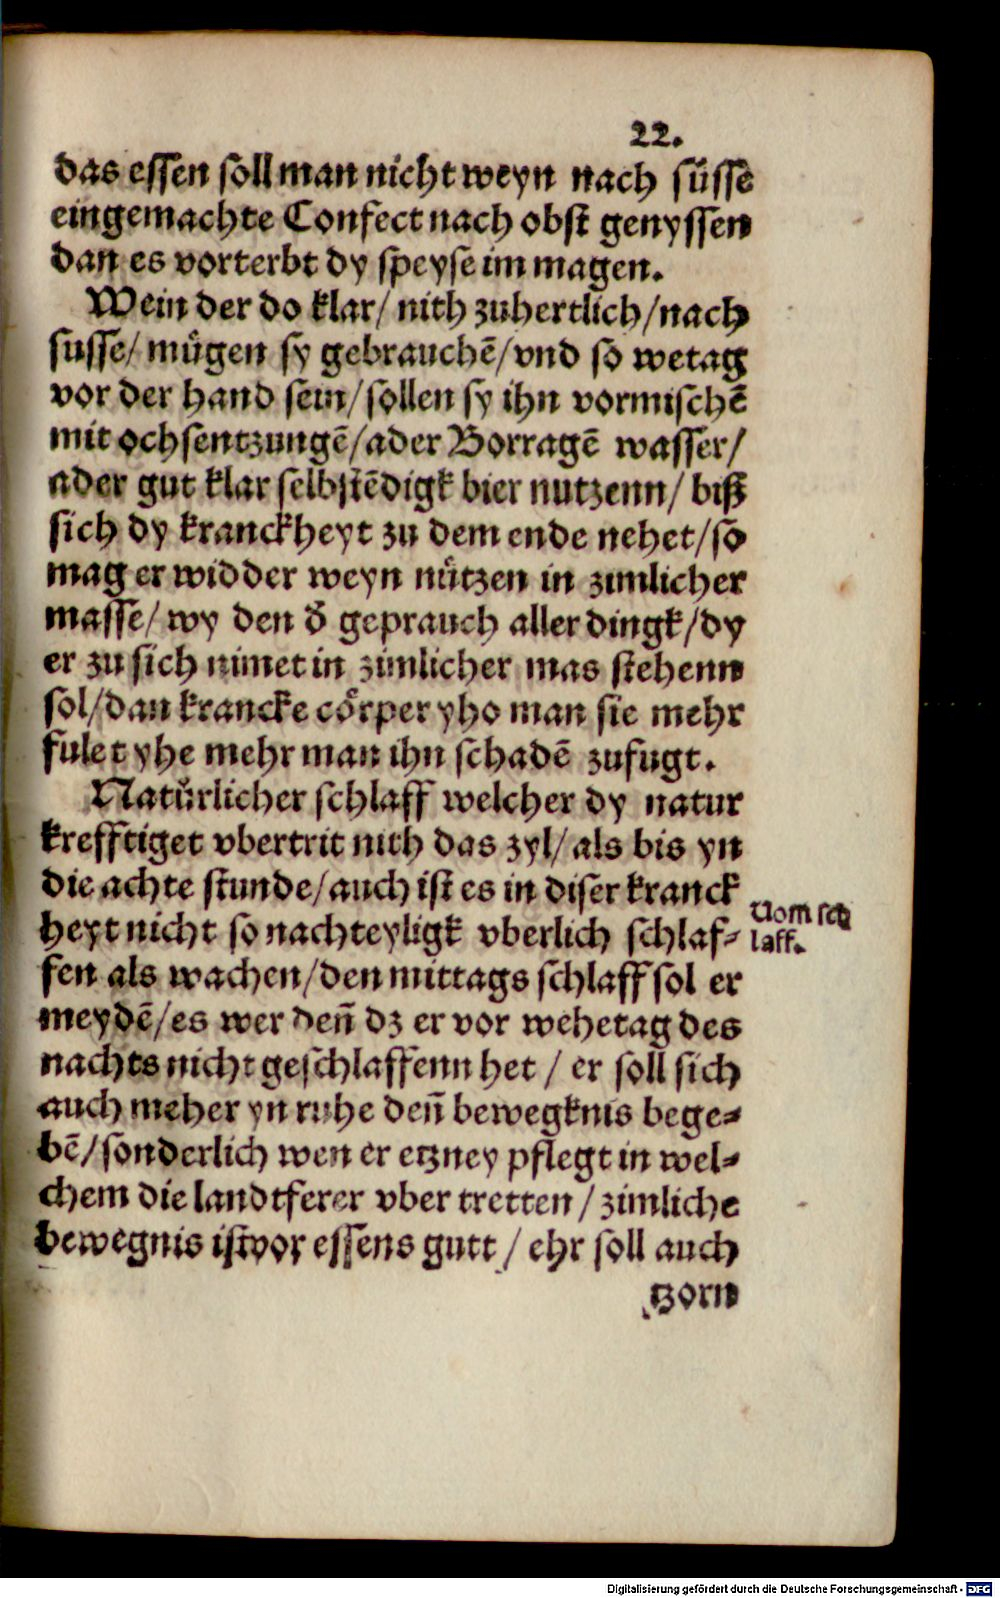 22.
das essen soll man nicht weyn nach süsse
eingemachte Confect nach obst genyssen
dan es vorterbt dy speyse im magen.
Wein der do klar/ nith zuhertlich/nach
susse/ mügen sy gebrauchē/vnd so wetag
vor der hand sein/sollen sy ihn vormischē
mit ochsentzungē/ader Borragē wasser/
ader gut klar selbstēdigk bier nutzenn/ biß
sich dy kranckheyt zu dem ende nehet/so
mag er widder weyn nützen in zimlicher
masse/ wy den d̄ geprauch aller dingk/dy
er zu sich nimet in zimlicher mas stehenn
sol/dan krancke cörper yho man sie mehr
fulet yhe mehr man ihn schadē zufugt.
Natürlicher schlaff welcher dy natur
krefftiget vbertrit nith das zyl/als bis yn
die achte stunde/auch ist es in diser kranck
heyt nicht so nachteyligk vberlich schlaf-
Vom sch
laff.
fen als wachen/den mittags schlaff sol er
meydē/es wer den̄ dz er vor wehetag des
nachts nicht geschlaffenn het / er soll sich
auch meher yn ruhe den̄ bewegknis bege-
bē/sonderlich wen er etzney pflegt in wel-
chem die landtferer vber tretten / zimliche
bewegnis ist vor essens gutt / ehr soll auch
tzorn
Digitalisierung gefördert durch die Deutsche Forschungsgemeinschaft - DFG